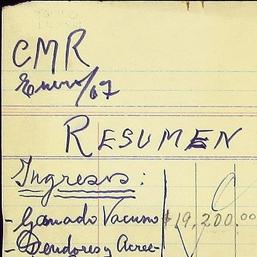 CMR
Enero/67
RESUMEN
Ingresos:
- Ganado Vacuno $19,200.00
- Deudores y Acree-